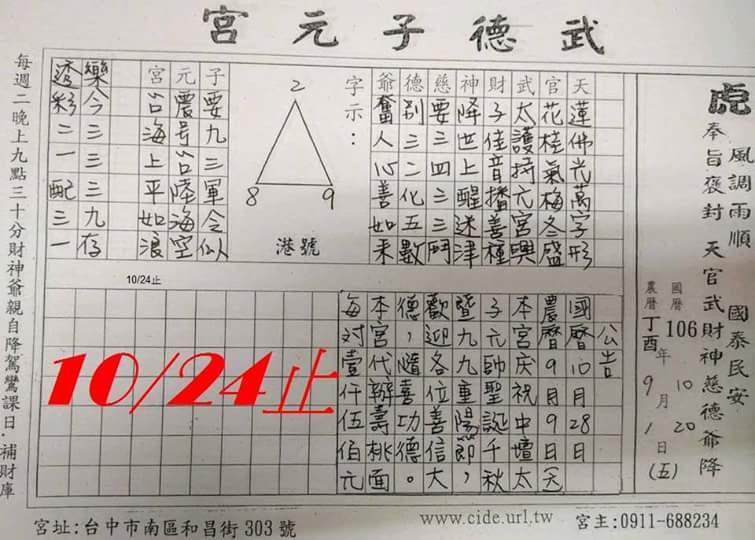 武德子元宮
虎
風調雨順 國泰民安
奉旨褒封 天官武財神慈德爺降
國曆 106年10月20日(五)
農曆 丁酉年9月1日
天蓮佛光萬字形
官花桂氣梅冬盛
武太護持元宮興
財子佳音播善種
神降世上醒迷津
慈要三四三三鬥
德別三二化五數
爺奮人心善如來
字示：
2
8 9
港號
子要九三軍令似
元農号台陸海空
宮台海上平如浪
樂今三三三九存
透彩二一配三一
公告
國曆10月28日
農曆9月9日天
本宮慶祝中壇太
子元帥聖誕千秋
暨九九重陽節，
歡迎各位善信大
德，隨喜功德。
本宮代辦壽桃面
每對壹仟伍佰元
10/24止
10/24止
每週二晚上九點三十分財神爺親自降駕鸞課日．補財庫
宮址:台中市南區和昌街 303 號
www.cide.url.tw
宮主:0911-688234